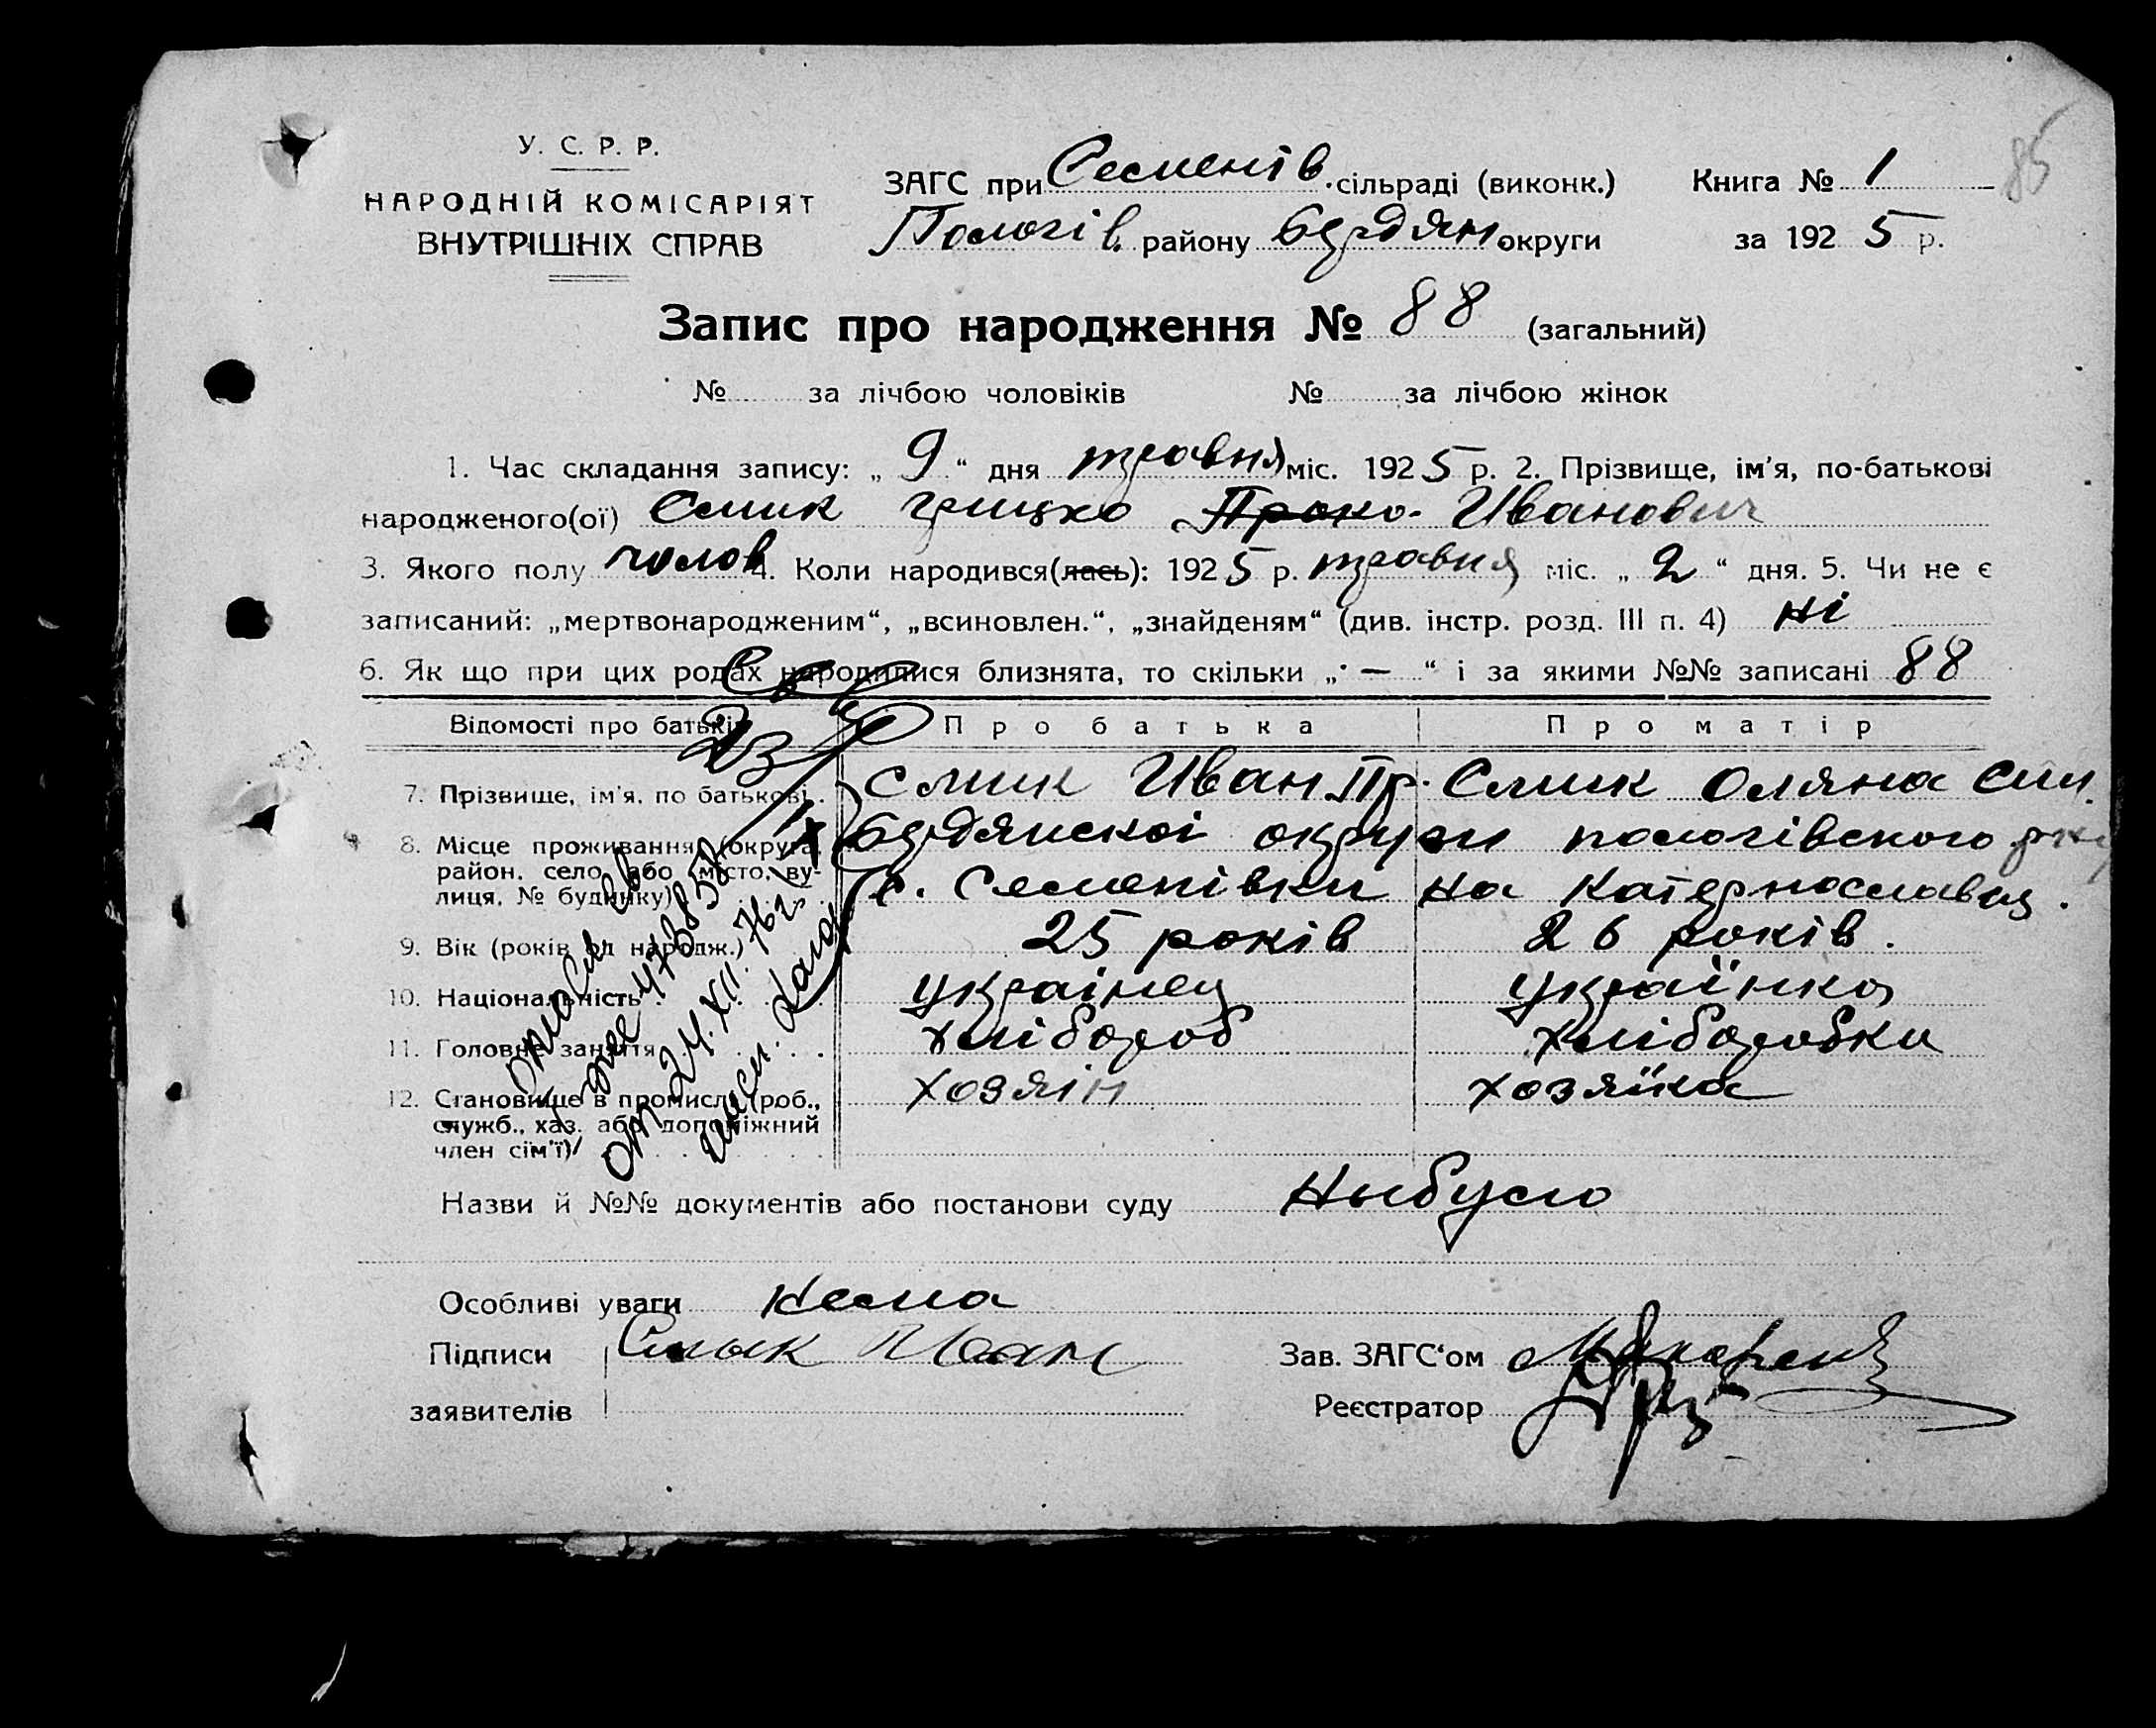 У. С. Р. Р.
НАРОДНІЙ КОМІСАРІЯТ
ВНУТРІШНІХ СПРАВ
ЗАГС при Семенів. сільраді (виконк.) Книга № 1 85
Пологів. району Бердян. округи за 1925 р.
Запис про народження № 88 (загальний)
№ за лічбою чоловіків № за лічбою жінок
1. Час складання запису: „ 9 “ дня травня міс. 1925 р. 2. Прізвище, ім'я, по-батькові
народженого(ої) Смик Грицко Проко- Иванович
3. Якого полу чолов 4. Коли народився(лась): 1925 р. травня міс. „ 2 “ дня. 5. Чи не є
записаний: „мертвонародженим“, „всиновлен.“, „знайденям“ (див. інстр. розд. III п. 4) ні
6. Як що при цих родах народилися близнята, то скільки „ — “ і за якими №№ записані 88
Відомості про батьків Про батька Про матір
7. Прізвище, ім'я, по батькові Смик Иван Пр. Смик Оляна Сим.
8. Місце проживання (округа, район, село або місто, вулиця, № будинку) Бердянскої округи пологівского
с. Семенівки на Катернославщ.
9. Вік (років од народж.) 25 років 26 років.
10. Національність українец українка
11. Головне заняття хлібороб хліборобка
12. Становище в промислі (роб., служб., хаз. або допоміжний член сім'ї) хозяін хозяйка
от 24.XII.76 г.
Назви й №№ документів або постанови суду Ныбуло
Особливі уваги Нема
Підписи Смык Иван Зав. ЗАГС‘ом
заявителів Реєстратор